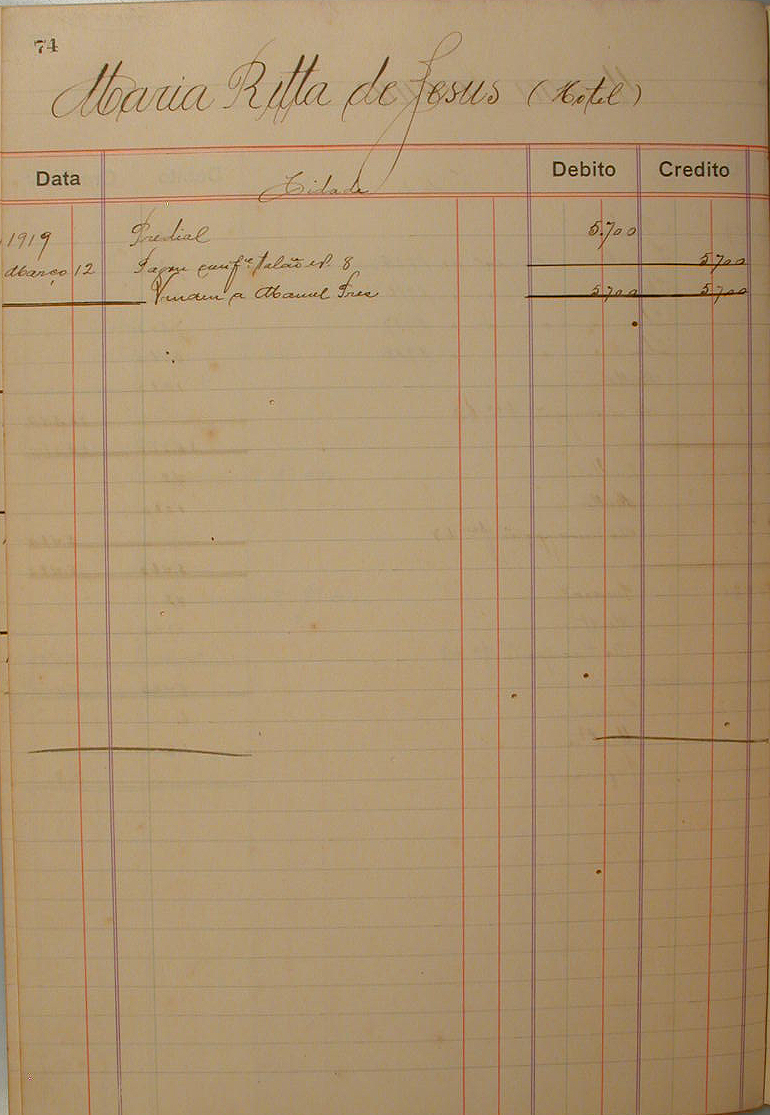 74
Maria Ritta de Jesus (Hotel)
Data Cidade Debito Credito
1919 Predial 5.700
Março 12 Pagou conf.e Talão nº. 8 5700
Vendeu a Manuel 5700 5700